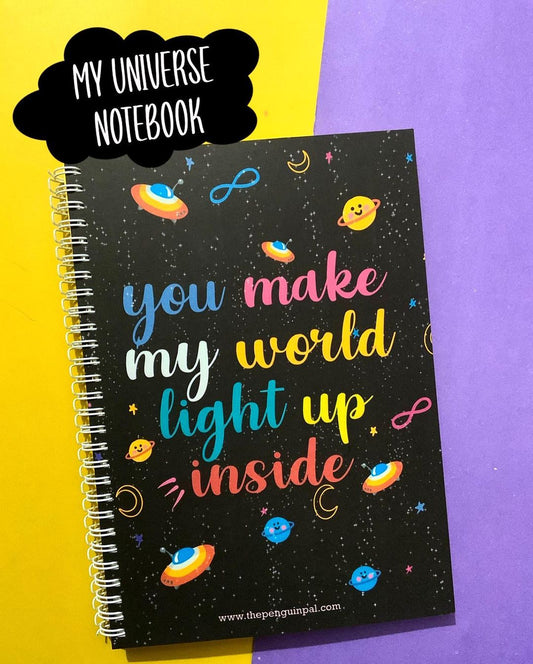 MY UNIVERSE
NOTEBOOK
you make
my world
light up
inside
www.thepenguinpal.com